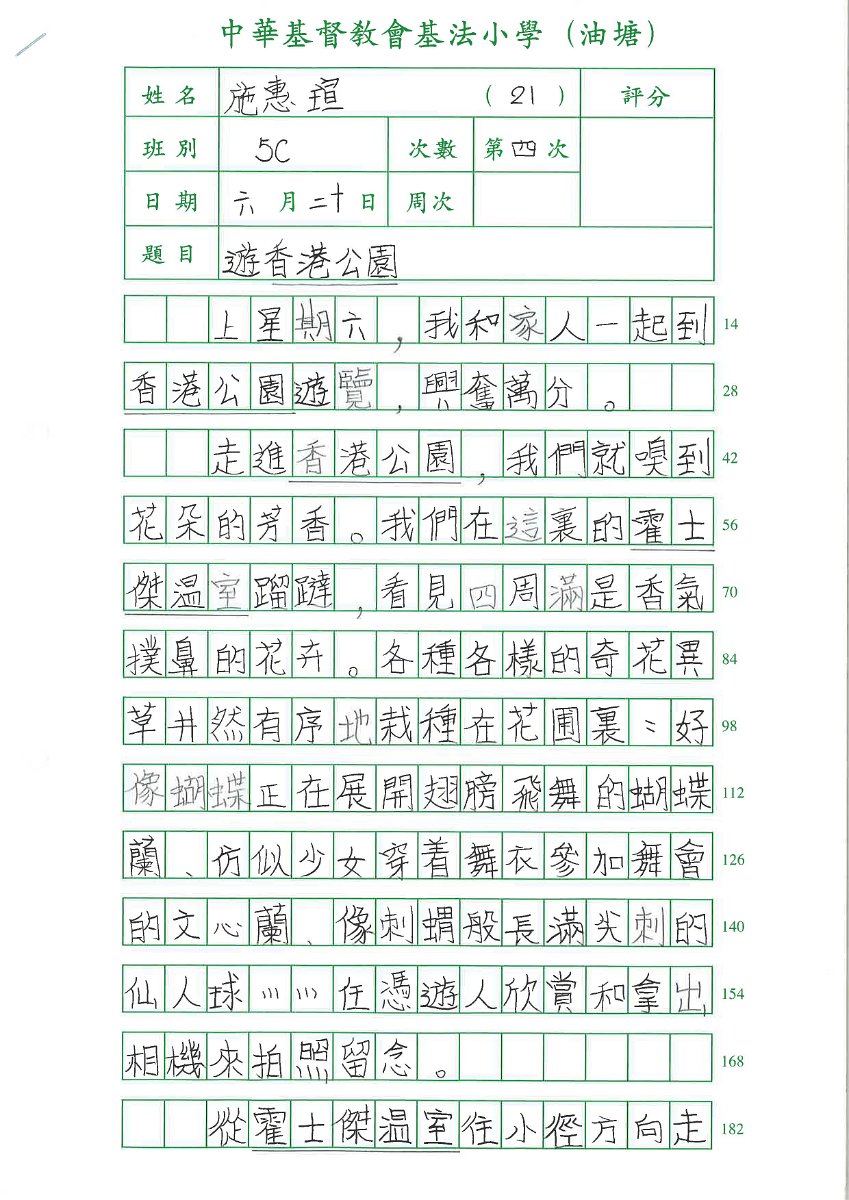 中華基督教會基法小學（油塘）
姓名 施惠瑄 （21） 評分
班別 5C 次數 第四次
日期 六月二十日 周次
題目 遊香港公園
上星期六，我和家人一起到 14
香港公園遊覽，興奮萬分。 28
走進香港公園，我們就嗅到 42
花朵的芳香。我們在這裏的霍士 56
傑温室蹓躂，看見四周滿是香氣 70
撲鼻的花卉。各種各樣的奇花異 84
草井然有序地栽種在花圃裏：好 98
像蝴蝶正在展開翅膀飛舞的蝴蝶 112
蘭、仿似少女穿着舞衣參加舞會 126
的文心蘭、像刺蝟般長滿尖刺的 140
仙人球……任憑遊人欣賞和拿出 154
相機來拍照留念。 168
從霍士傑温室住小徑方向走 182